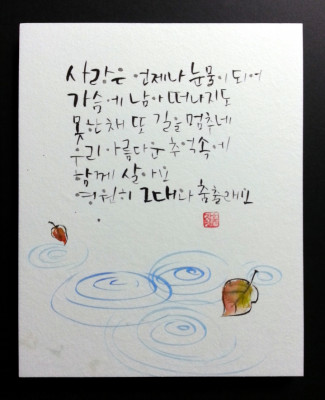 사랑은 언제나 눈물이 되어
가슴에 남아 떠나지도
못한 채 또 길을 멈추네
우리 아름다운 추억속에
함께 살아요
영원히 그대와 춤출래요